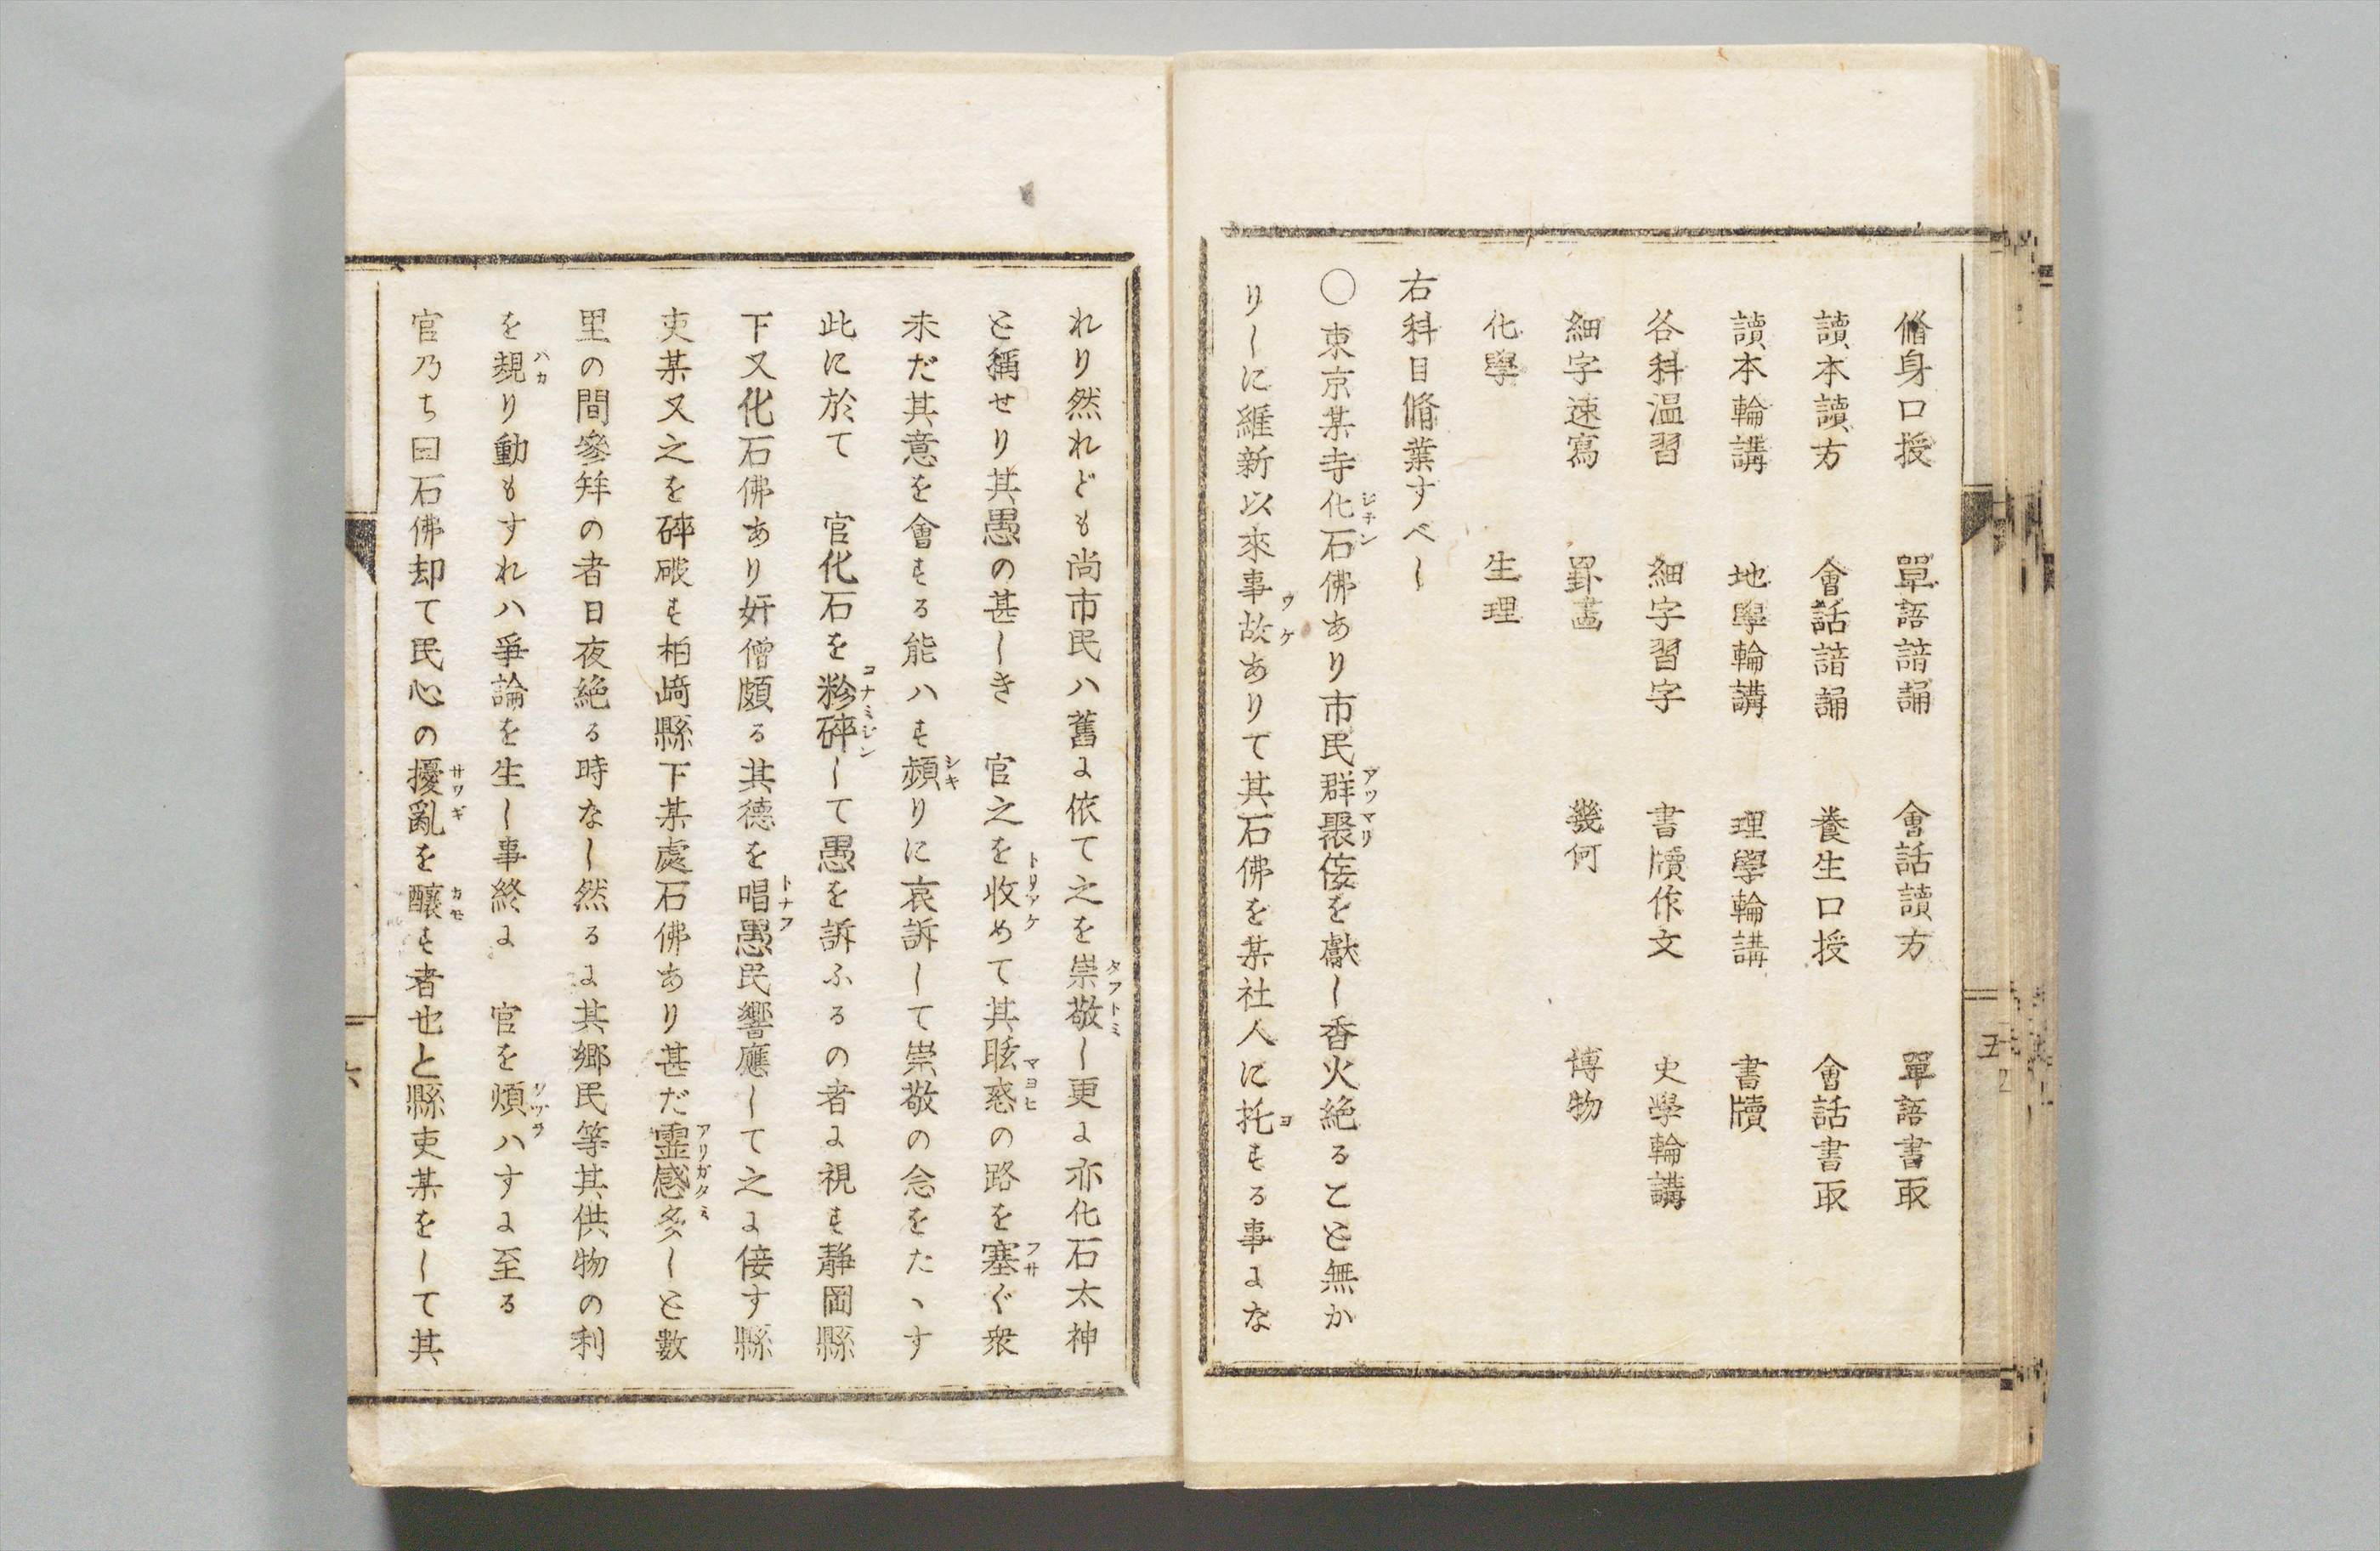 脩身口授 單語諳誦 會話讀方 單語書取
讀本讀方 會話諳誦 養生口授 會話書取
讀本輪講 地學輪講 理學輪講 書牘
各科温習 細字習字 書牘作文 史學輪講
細字速寫 罫畫 幾何 博物
化學 生理
右科目脩業すべし
〇東京某寺化石佛あり市民群聚侫を獻し香火絶ることと無か
シチン
アツマリ
りしに維新以來事故ありて其石佛を某社人に托する事よな
ワケ
ヨ
五
れり然れども尚市民ハ舊よ依て之を崇敬し更よ亦化石太神
タフトミ
と稱せり其愚の甚しき 官之を收めて其眩惑の路を塞ぐ衆
トリアケ
マヨヒ
フサ
未だ其意を會する能ハず頻りに哀訴して崇敬の念をたゝす
シキ
此に於て 官化石を粉碎して愚を訴ふるの者よ視す靜岡縣
コナミジン
下又化石佛あり奸僧頗る其德を唱愚民響應して之よ侫す縣
トナフ
吏某又之を碎磤す柏﨑縣下某處石佛あり甚だ霊感多しと數
アリガタミ
里の間參拜の者日夜絶る時なし然るよ其郷民等其供物の利
を規り動もすれハ爭論を生し事終よ 官を煩ハすよ至る
ハカ
ワヅラ
官乃ち曰石佛却て民心の擾亂を釀す者也と縣吏某をして其
サワギ
カモ
六